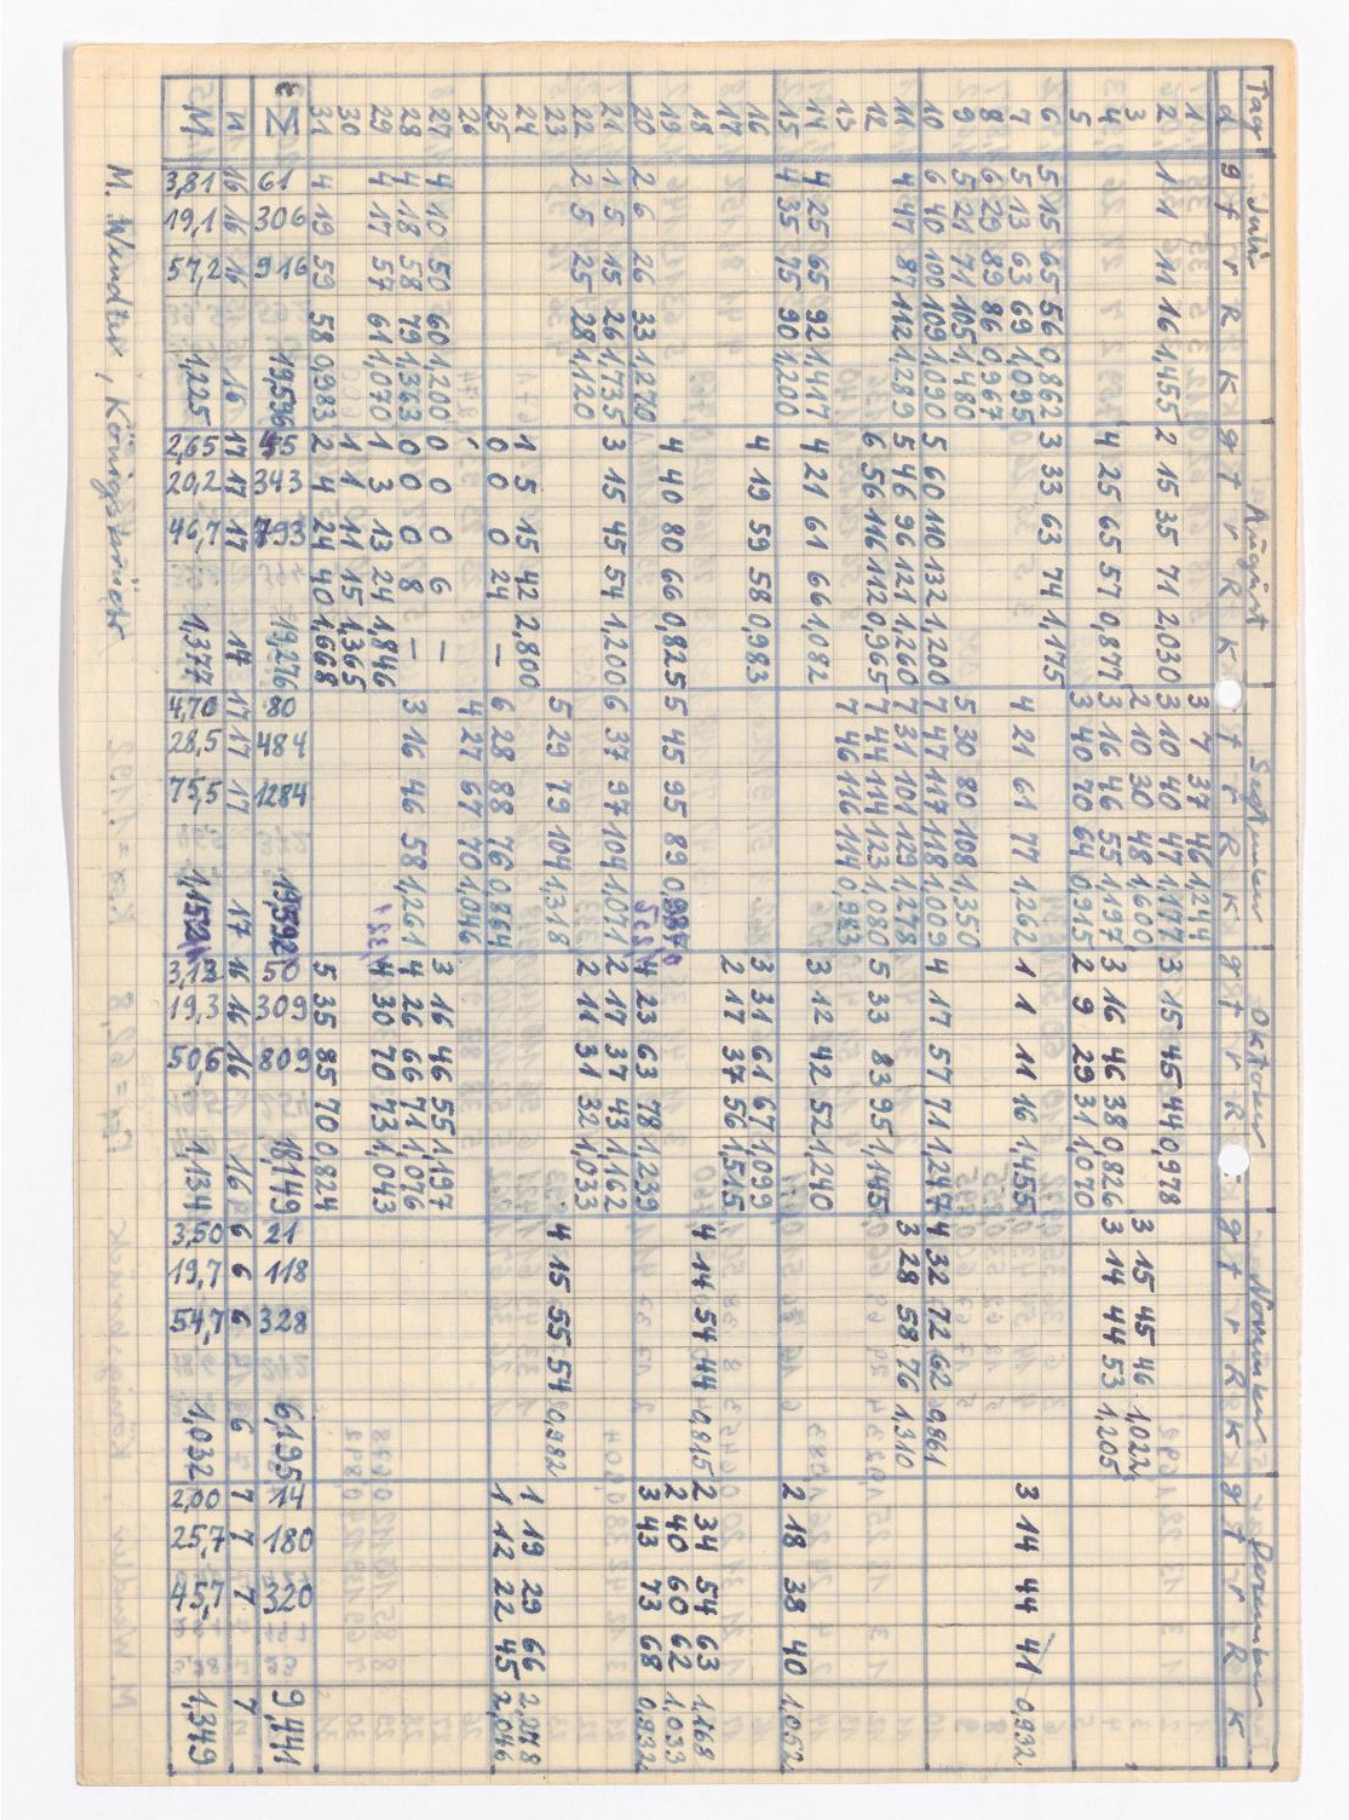 Tag Juli August September Oktober November Dezember
d g f r R K g f r R K f r R K g f r R g f r R K g f r R K
1 3 7 37 46 1,244
2 1 1 11 16 1,455 2 15 35 71 2030 3 10 40 47 1,177 3 15 45 44 0,978
3 2 10 30 48 1,600 3 15 45 46 1,022
4 4 25 65 57 0,877 3 16 46 55 1,197 3 16 46 38 0,826 3 14 44 53 1,205
5 3 40 70 64 0,915 2 9 29 31 1,070
6 5 15 65 56 0,862 3 33 63 74 1,175
7 5 13 63 69 1,095 4 21 61 77 1,262 1 1 11 16 1,455 3 14 44 41 0,932
8 6 29 89 86 0,967
9 5 21 71 105 1,480 5 30 80 108 1,350
10 6 40 100 109 1,090 5 60 110 132 1,200 7 47 117 118 1,009 4 17 57 71 1,247 4 32 72 62 0,861
11 4 47 87 112 1,289 5 46 96 121 1,260 7 31 101 129 1,278 3 28 58 76 1,310
12 6 56 116 112 0,965 7 44 114 123 1,080 5 33 83 95 1,145
13 7 46 116 114 0,983
14 4 25 65 92 1,417 4 21 61 66 1,082 3 12 42 52 1,240
15 4 35 75 90 1,200 2 18 38 40 1,052
16 4 19 59 58 0,983 3 31 61 67 1,099
17 2 17 37 56 1,515
18 4 14 54 44 0,815 2 34 54 63 1,168
19 4 40 80 66 0,825 5 45 95 89 2 40 60 62 1,033
20 2 6 26 33 1,270 4 23 63 78 1,239 3 43 73 68 0,932
21 1 5 15 26 1,735 3 15 45 54 1,200 6 37 97 104 1,071 2 17 37 43 1,162
22 2 5 25 28 1,120 2 11 31 32 1,033
23 5 29 79 104 1,318 4 15 55 54 0,982
24 1 5 15 42 2,800 1 19 29 66 2,278
25 0 0 0 24 — 6 28 88 76 0,864 1 12 22 45 2,046
26 4 27 67 70 1,046
27 4 10 50 60 1,200 0 0 0 6 — 3 16 46 55 1,197
28 4 18 58 79 1,363 0 0 0 8 — 3 16 46 58 1,261 4 26 66 71 1,076
29 4 17 57 61 1,070 1 3 13 24 1,846 4 30 70 73 1,043
30 1 1 11 15 1,365
31 4 19 59 58 0,983 2 4 24 40 1,668 5 35 85 70 0,824
Σ 61 306 916 19,596 45 343 793 19,276 80 484 1284 19,592 50 309 809 18,149 21 118 328 6,195 14 180 320 9,441
n 16 16 16 16 17 17 17 14 17 17 17 17 16 16 16 16 6 6 6 6 7 7 7 7
M 3,81 19,1 57,2 1,225 2,65 20,2 46,7 1,377 4,70 28,5 75,5 1,152 3,13 19,3 50,6 1,134 3,50 19,7 54,7 1,032 2,00 25,7 45,7 1,349
M. Wendler, Königsbrück